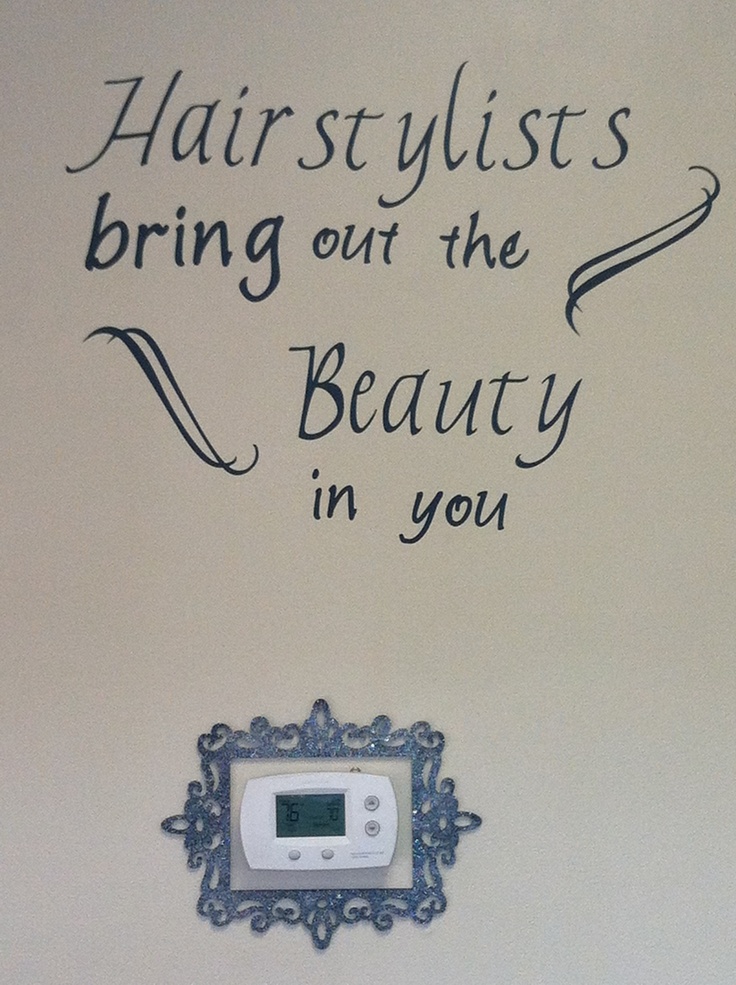 Hairstylists
bring out the
Beauty
in you
76 70